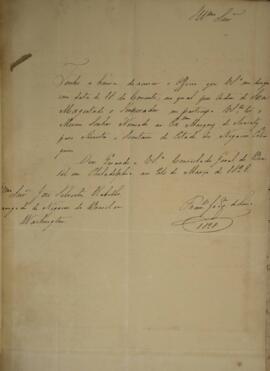 Illmo Senr
Tenho a honra de accusar o Officio que VSa me dirigio
com data de 18 do Corrente, no qual por Ordem de Sua
Magestade o Imperador me participa VSa ter o
Mesmo Senhor Nomeado ao Exmo Marquez de Aracaty
para Ministro e Secretario de Estado dos Negocios Estran
geiros.
Deos Guarde a VSa Consulado Geral do Bra
sil em Philadelphia aos 20 de Março de 1828.
Illmo Senr José Silvestre Rebello
Encarregado de Negocios do Brasil em
Washington
1828